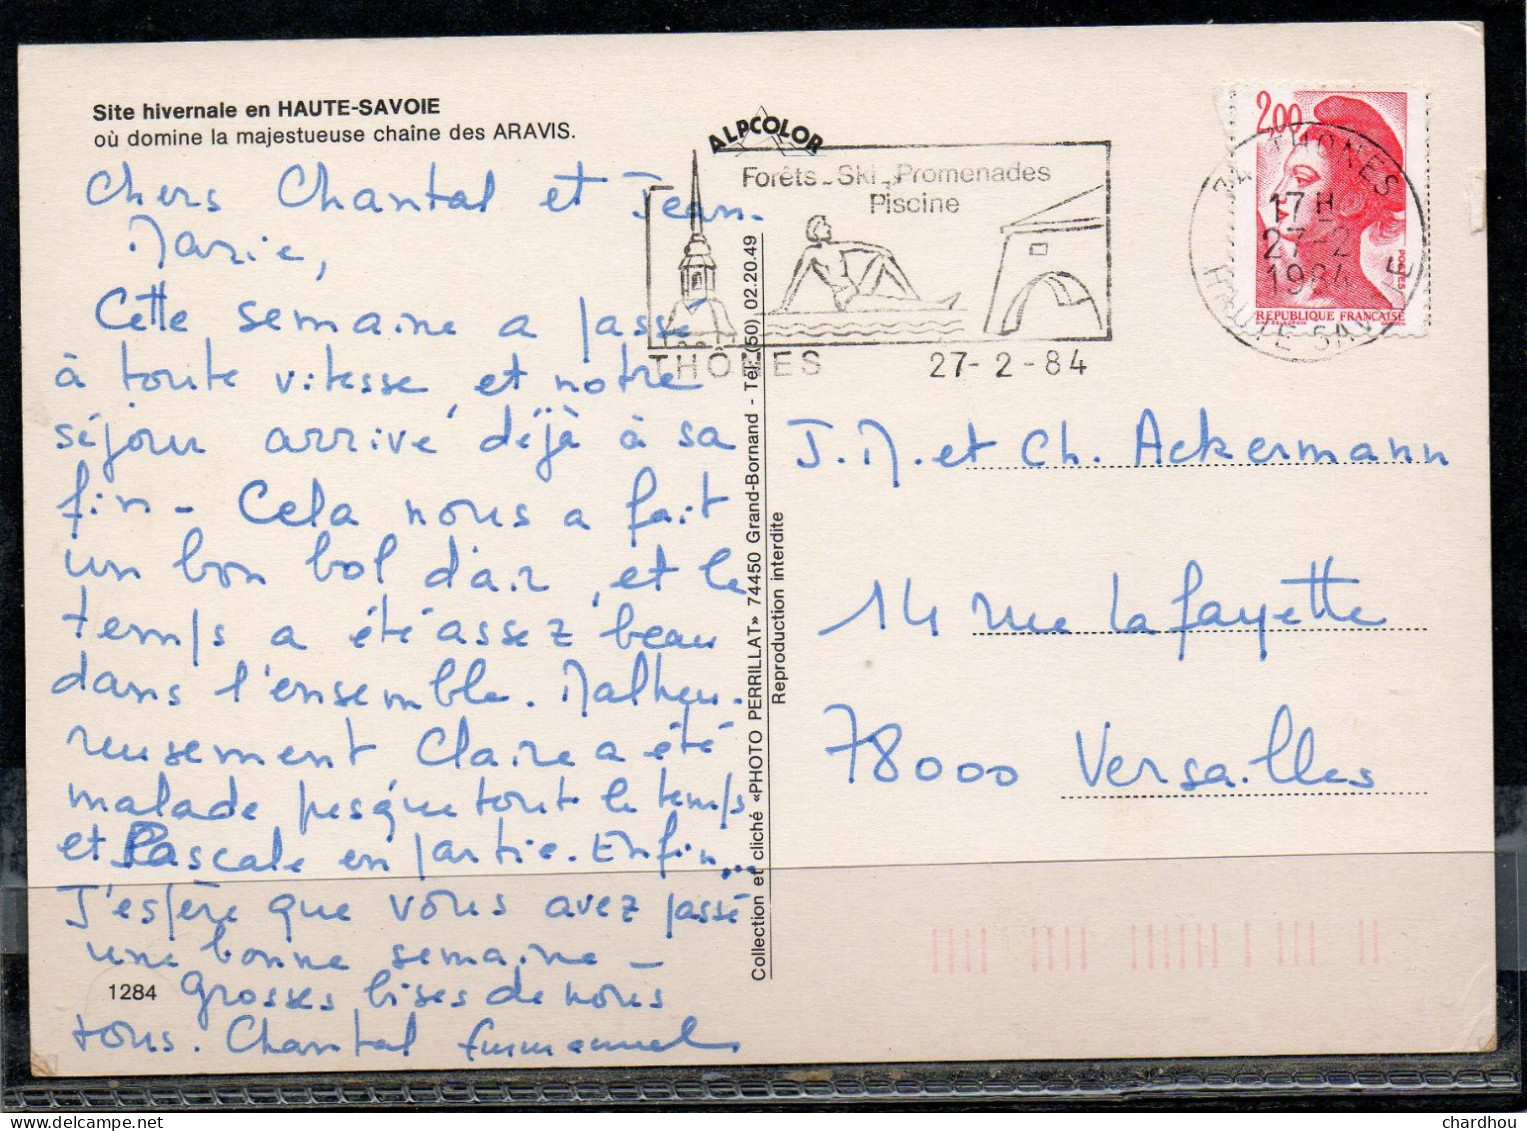 Site hivernale en HAUTE-SAVOIE
où domine la majestueuse chaîne des ARAVIS.
Chers Chantal et Jean-
Marie,
Cette semaine a passé
à toute vitesse, et notre
séjour arrivé déjà à sa
fin - Cela nous a fait
un bon bol d'air, et le
temps a été assez beau
dans l'ensemble. Malheu-
reusement Claire a été
malade presque tout le temps
et Pascale en partie. Enfin...
J'espère que vous avez passé
une bonne semaine -
Grosses bises de nous
tous. Chantal Emmanuel
1284
Collection et cliché «PHOTO PERRILLAT» 74450 Grand-Bornand - Tél. (50) 02.20.49
Reproduction interdite
ALPCOLOR
Forêts - Ski - Promenades
Piscine
THÔNES 27-2-84
2,00
POSTES
REPUBLIQUE FRANÇAISE
74 THONES
17 H
27-2
1984
HAUTE-SAVOIE
J.M. et Ch. Ackermann
14 rue Lafayette
78000 Versailles
chardhou